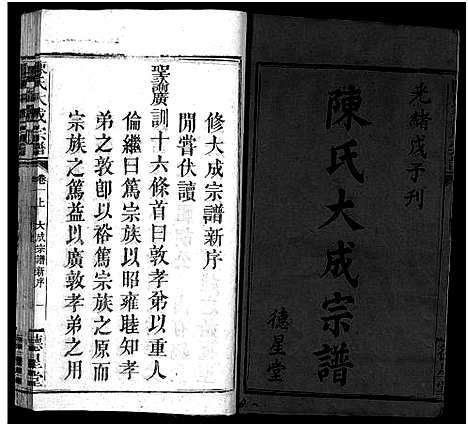 光緒戊子刊
陳氏大成宗譜
德星堂
修大成宗譜新序
閒嘗伏讀
聖諭廣訓十六條首曰敦孝弟以重人
倫繼曰篤宗族以昭雍睦知孝
弟之敦卽以裕篤宗族之原而
宗族之篤益以廣敦孝弟之用
陳氏大成宗譜
卷上
大成宗譜新序
一
德星堂